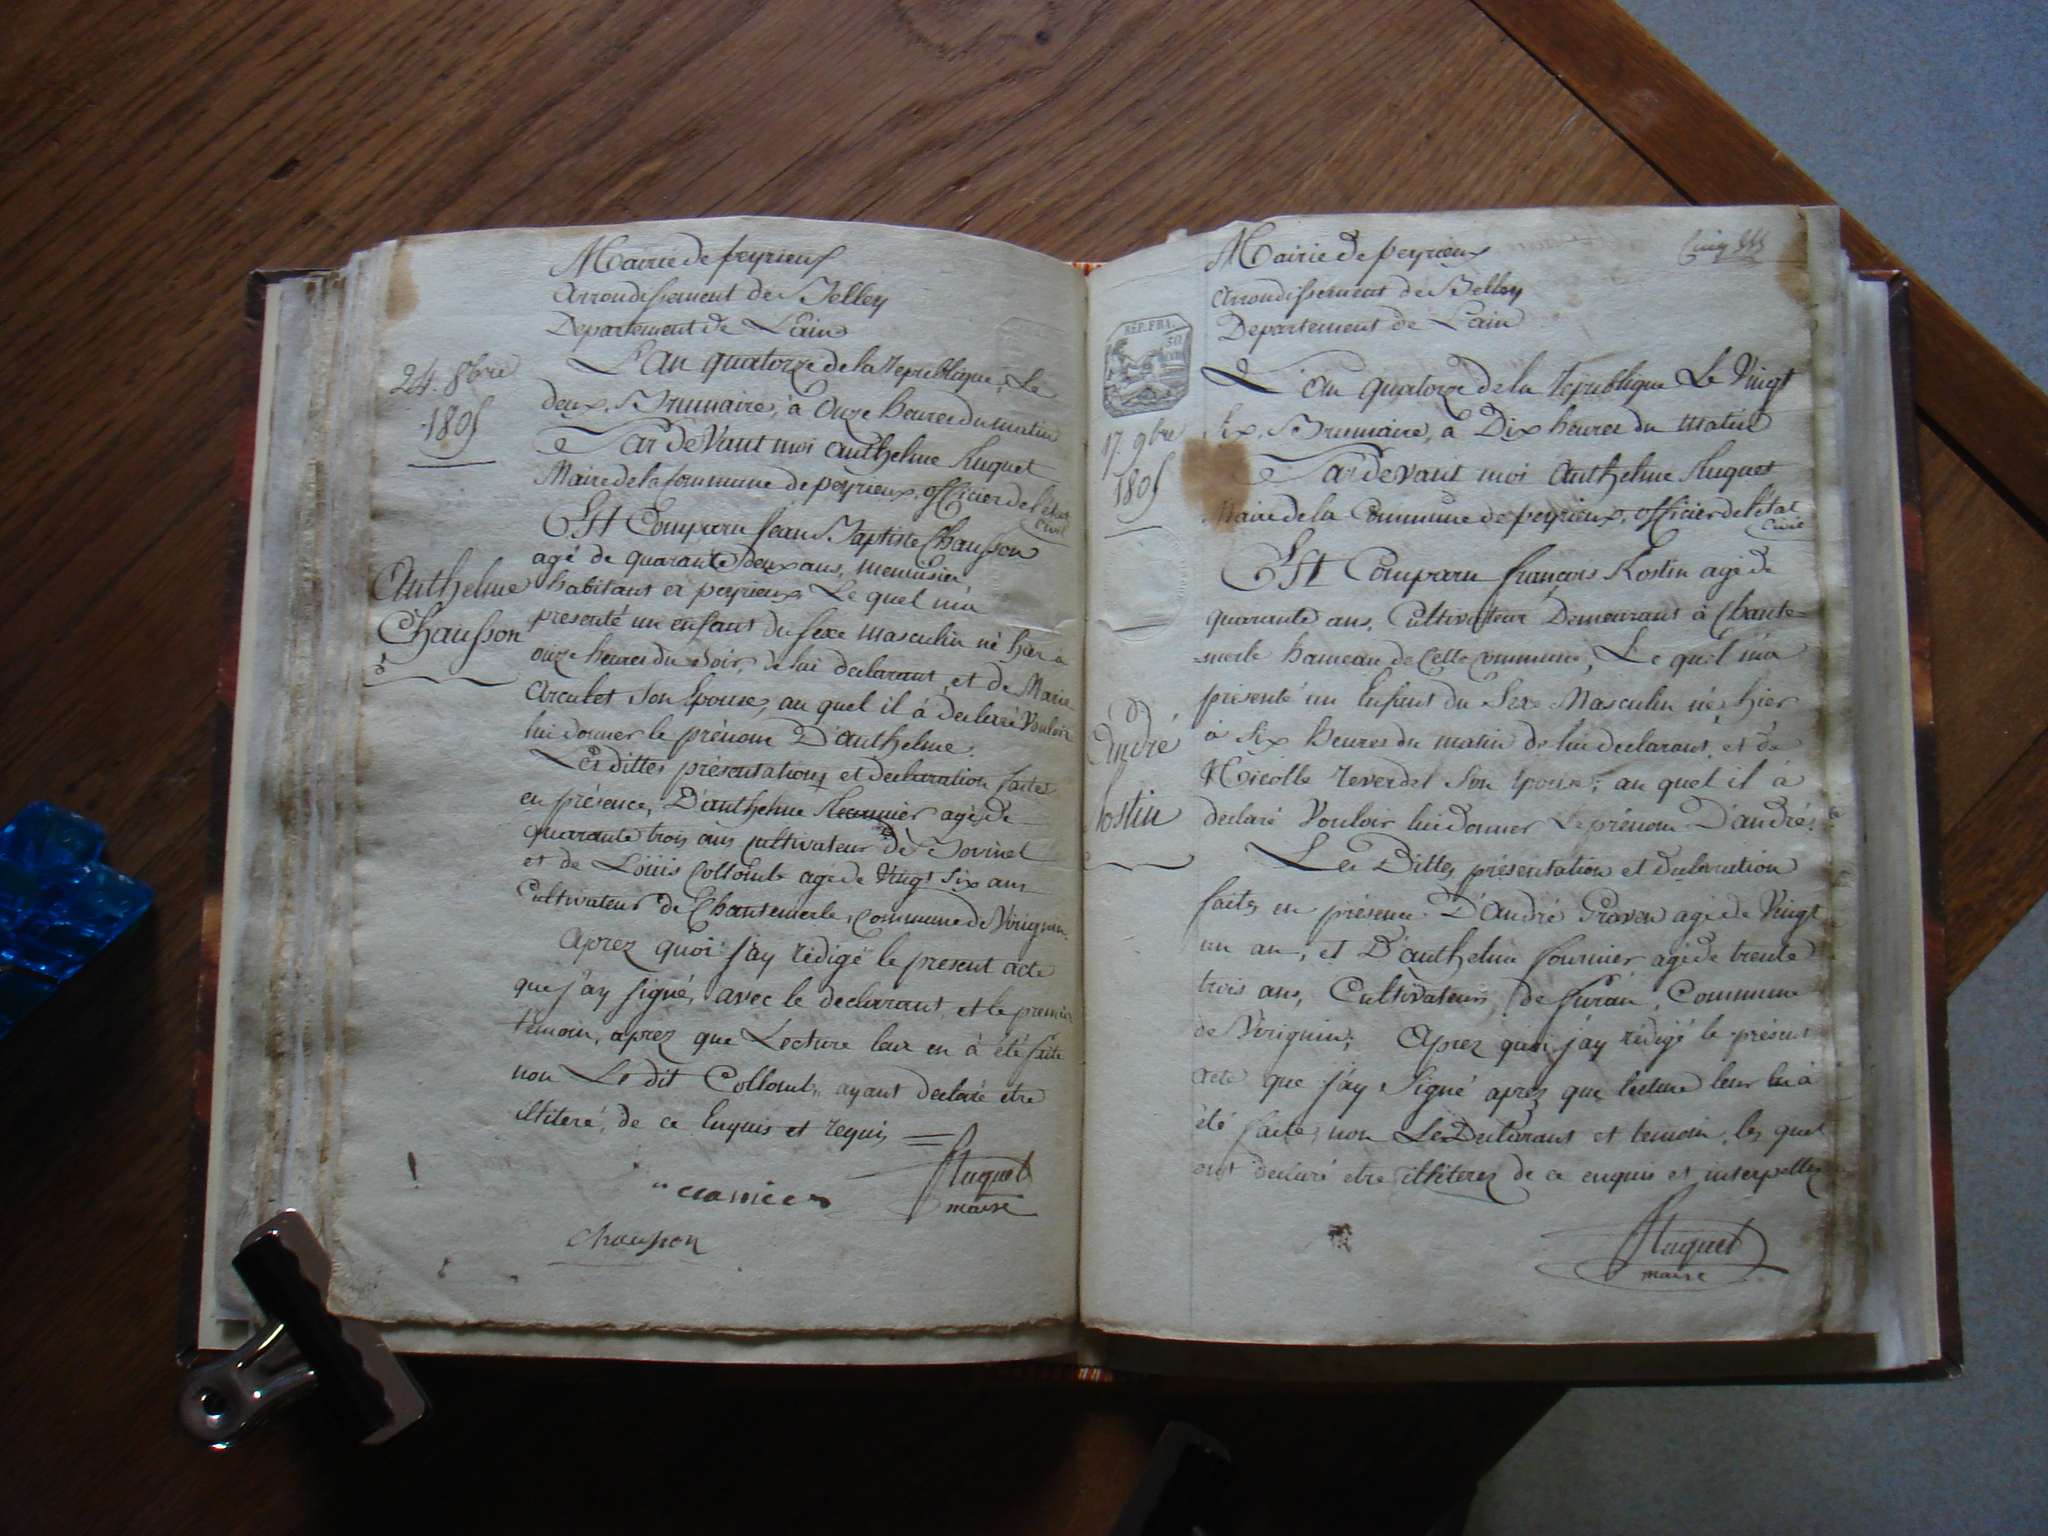 Mairie de peyrieux
Arrondissement de Belley
Departement de L'ain
24. 8bre
1805
L'an quatorze de la republique, Le
deux Brumaire, à Onze heures du matin
Pardevant moi Anthelme Huguet
Maire de la Commune de peyrieux, officier de l'état
civil
Est Comparu Jean Baptiste Chausson
agé de quarante deux ans, menuisier
Anthelme
Chausson
habitant à peyrieux Le quel m'a
presenté un enfant du sexe masculin né hier à
onze heures du soir, de lui declarant, et de Marie
son Epouse, au quel il à declaré Vouloir
lui donner le prénom D'anthelme.
Les dittes présentations et declaration faites
en présence, D'anthelme agé de
quarante trois ans cultivateur de
et de Loüis Collomb agé de Vingt Six ans
Cultivateur de Chantemerle, commune de Virignin.
Aprez quoi j'ay rédigé le present acte
que j'ay signé, avec le declarant, et le premier
témoin, aprez que Lecture leur en à été faite
non Le dit Collomb, ayant declaré etre
illiteré, de ce Enquis et requis
Huguet
maire
chausson
Mairie de peyrieux
Arrondissement de Belley
Departement de L'ain
REP. FRA.
50
17. 9bre
1805
L'an quatorze de la republique Le Vingt
six, Brumaire, à Dix heures du matin
Pardevant moi Anthelme Huguet
Maire de la Commune de peyrieux, officier de l'état
Civil
Est Comparu françois Rostin agé de
quarante ans, Cultivateur Demeurant à Chante=
=merle hameau de Cette commune, Le quel m'a
présenté un Enfant du Sexe Masculin né hier
à Six heures du matin de lui declarant, et de
Nicolle reverdel Son Epouse; au quel il à
André
Rostin
declaré Vouloir lui donner Le prénom D'andré.
Les Dittes présentation et declaration
faites en présence D'André agé de Vingt
un an, et D'anthelme fournier agé de trente
trois ans, Cultivateurs de furan, Commune
de Virignin; Aprez quoi j'ay rédigé le présent
acte que j'ay Signé aprez que lecture leur en à
été faite, non Le Declarant et temoin, les quel
ont declaré etre illiterez de ce enquis et interpellez
Huguet
maire